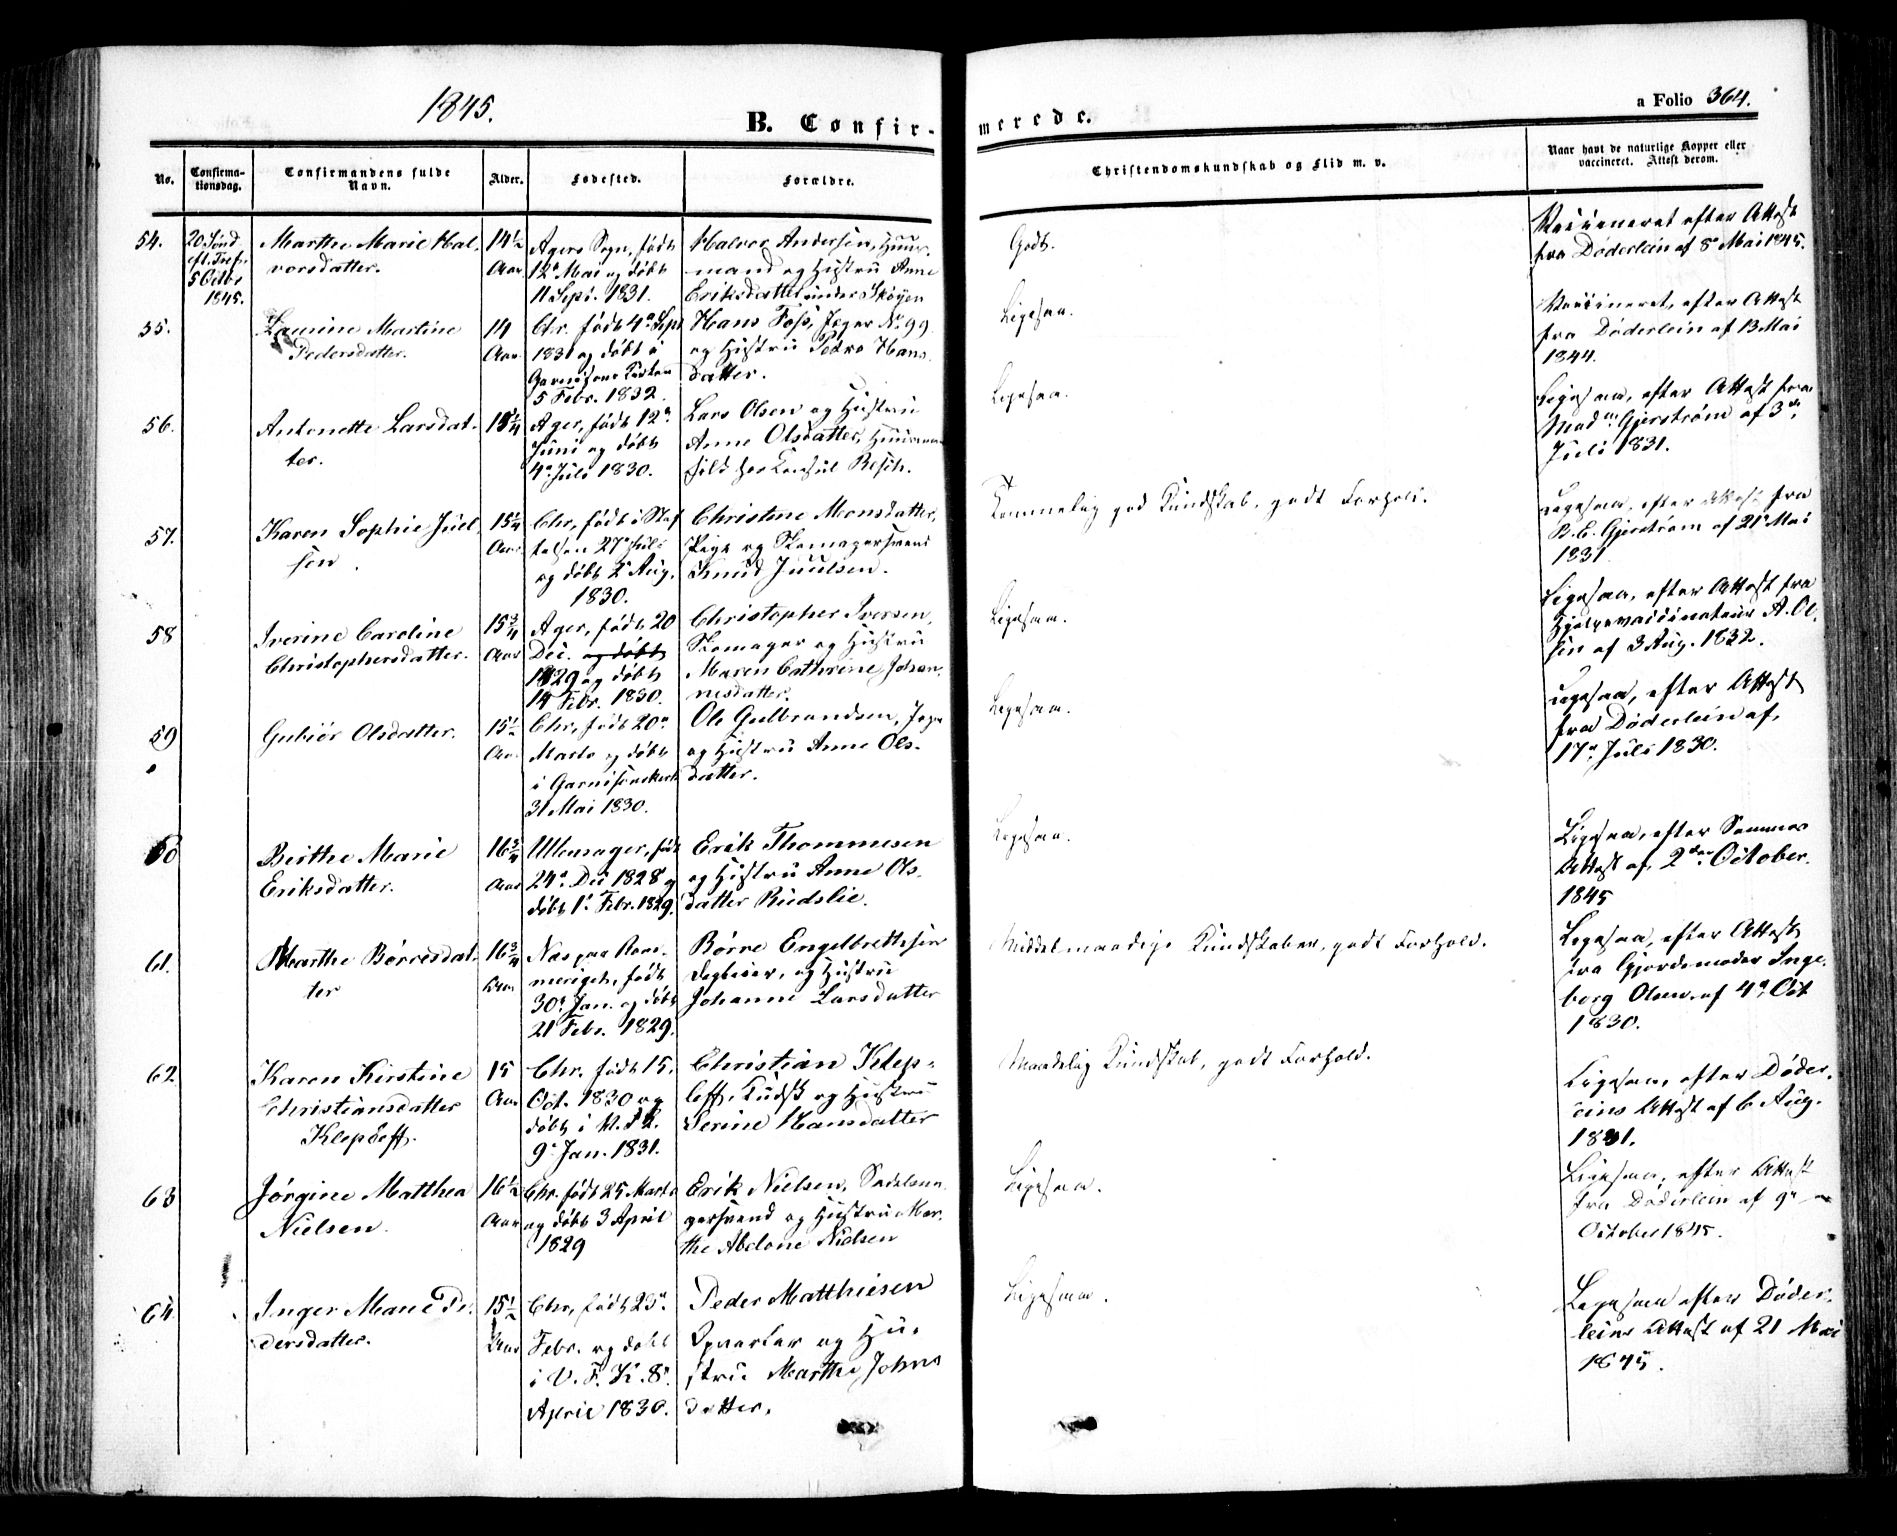 1845.
B. Confir-
merede.
a Folio 364.
No.
Confirma-
tionsdag.
Confirmandens fulde
Navn.
Alder.
Fødested.
Forældre.
Christendomskundskab og Flid m. v.
Naar havt de naturlige Kopper eller
vaccineret. Attest derom.
54.
20 Sønd.
eft. Tref.
5 Octbr
1845.
Marthe Marie Hal-
vorsdatter.
14½
Aar
Agers Sogn, født
12te Mai og døbt
11 Sept. 1831.
Halvor Andersen, Huus-
mand og Hustru Anne
Eriksdatter under Skøyen
Godt.
Vaccineret efter Attest
fra Døderlein af 8de Mai 1845.
55.
Laurine Martine
Pedersdatter.
14
Aar
Chr. født 4de Sept
1831 og døbt i
Garnisons Kirken
5 Febr. 1832.
Hans Foss, Jæger No 99
og Hustru Petra Hans-
datter.
Ligesaa.
Vaccineret, efter Attest
fra Døderlein af 13 Mai
1844.
56.
Antonette Larsdat-
ter.
15¼
Ager, født 12te
Juni og døbt
4de Juli 1830.
Lars Olsen og Hustru
Anne Olsdatter, Huusmand
Ligesaa.
Ligesaa, efter Attest fra
Mad. Gjerstrøm af 3de
Juli 1831.
57.
Karen Sophie Juel-
sen.
15¼
Aar
Chr, født i Stif-
telsen 27de Juli
og døbt 2de Aug.
1830.
Christine Monsdatter,
Pige og Skomagersvend
Knud Juulsen.
Temmelig god Kundskab, godt Forhold.
Ligesaa, efter Attest fra
B. E. Gjerstrøm af 21de Mai
1831
58
Iverine Caroline
Christophersdatter.
15¾
Aar
Ager, født 20
Dec. og døbt
1829 og døbt
14 Febr. 1830.
Christopher Iversen,
Skomager og Hustru
Maren Cathrine Johan-
nesdatter.
Ligesaa.
Ligesaa, efter Attest fra
Hjelpevaccinateur A. Ol-
sen af 3 Aug. 1832.
59
Gubiør Olsdatter.
15½
Aar
Chr, født 20de
Marts og døbt
i Garnisonskirk
31 Mai 1830.
Ole Gulbrandsen, Jæger
og Hustru Anne Ols-
datter.
Ligesaa.
Ligesaa, efter Attest
fra Døderlein af
17de Juli 1830.
60
Berthe Marie
Eriksdatter.
16¾
Aar
Ullensager, født
24de Dec 1828 og
døbt 1ste Febr. 1829.
Erik Thommesen
og Hustru Anne Ols-
datter Rudslie.
Ligesaa.
Ligesaa, efter Sammes
Attest af 2den October
1845
61.
Marthe Børresdat-
ter
16¾
Aar
Næs paa Rome-
meriget, født
30te Jan. og døbt
21 Febr. 1829.
Børre Engelbrethsen
Dagleier, og Hustru
Johanne Larsdatter
Middelmaadige Kundskaber, godt Forhold.
Ligesaa, efter Attest
fra Gjordemoder Inge-
borg Olsen af 4de Oct
1830.
62
Karen Kirstine
Christiansdatter
Klepeleff.
15
Aar
Chr. født 15.
Oct. 1830 og
døbt i V. F. K.
9de Jan. 1831.
Christian Klep-
leff, Kudsk og Hustru
Serine Hansdatter
Maadelig Kundskab, godt Forhold.
Ligesaa, efter Døder-
leins Attest af 6 Aug.
1831.
63
Jørgine Matthea
Nielsen.
16½
Aar
Chr. født 25 Marts
og døbt 3 April
1829
Erik Nielsen, Sadelma-
gersvend og Hustru Mar-
the Abelone Nielsen
Ligesaa.
Ligesaa, efter Attest
fra Døderlein af 9de
October 1845.
64
Inger Marie Pe-
dersdatter.
15½
Aar
Chr, født 23de
Febr. og døbt
i V. F. K. 8de
April 1830.
Peder Matthiesen
Opvarter og Hu-
stru Marthe Johns-
datter.
Ligesaa.
Ligesaa efter Døder-
leins Attest af 21 Mai
1845.